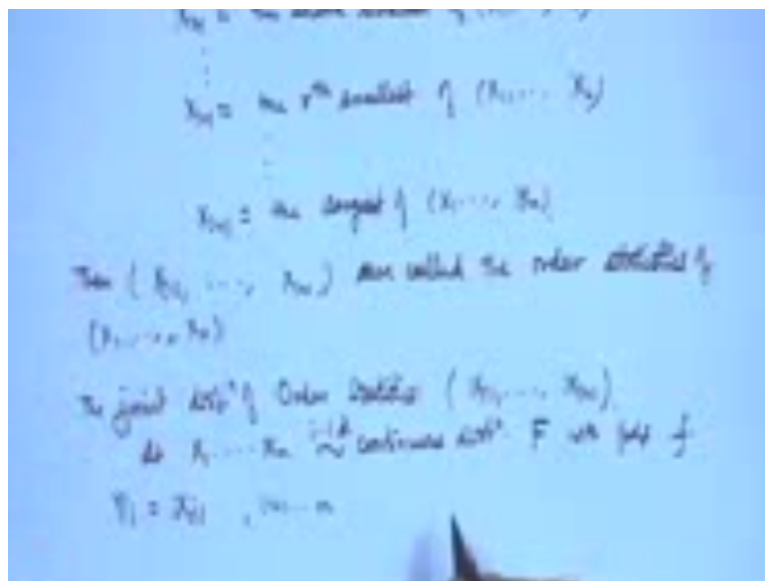 X(r) = the rth smallest of (X1, ... Xn)
X(n) = the largest of (X1, ..., Xn)
Then (X(1), ..., X(n)) are called the order statistics of
(X1, ..., Xn)
The joint distn of Order Statistics (X(1), ..., X(n))
Let X1 ... Xn i.i.d ~ continuous distn F with pdf f
Yi = X(i) , i=1...n